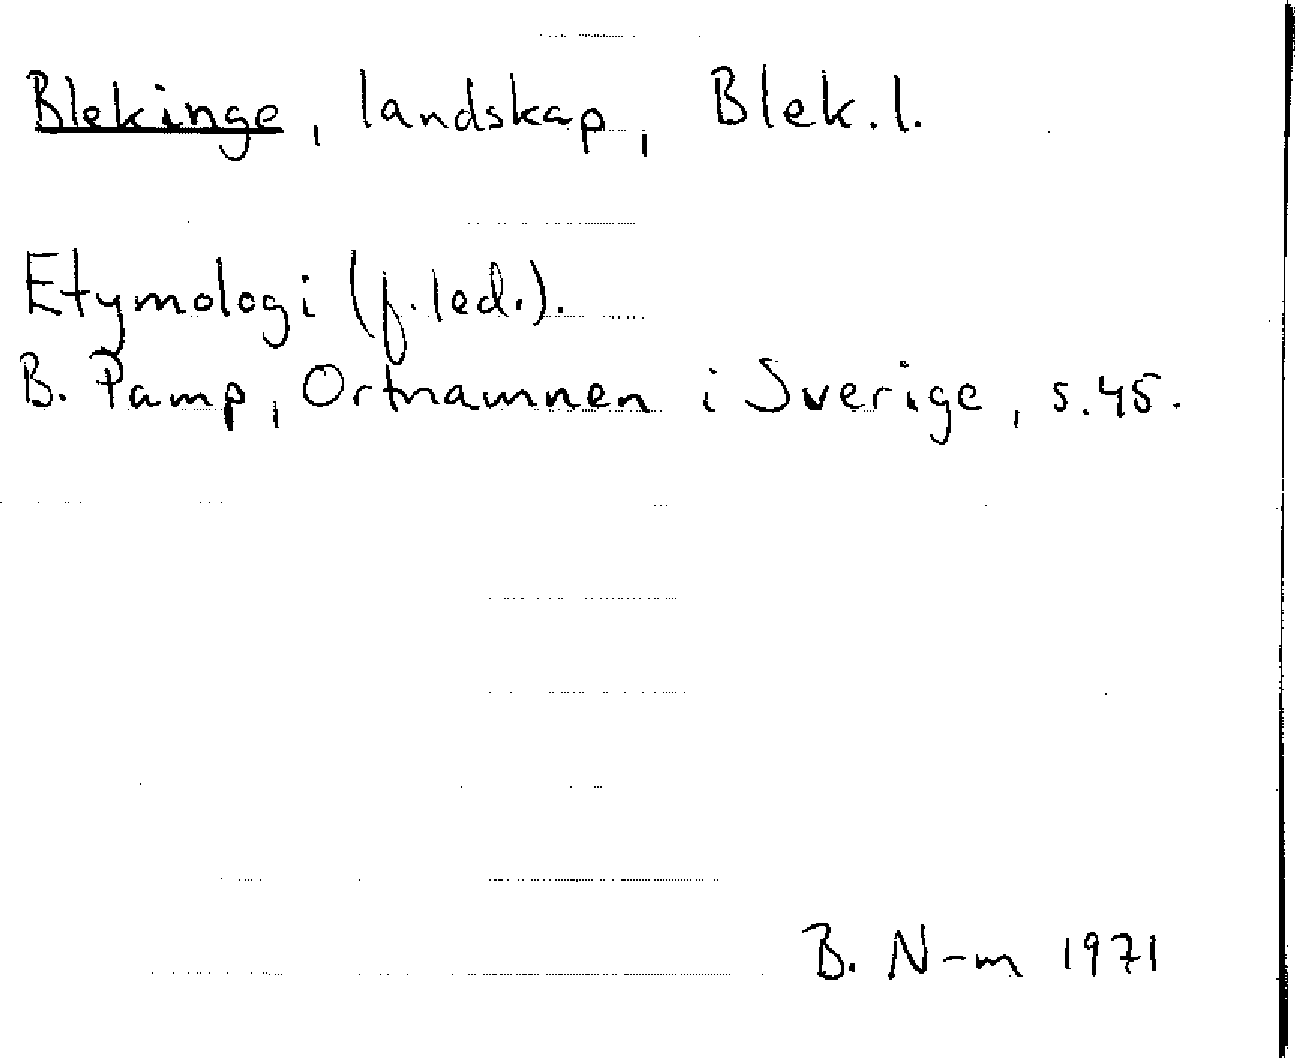 Blekinge, landskap, Blek.l.
Etymologi (f.led.).
B. Pamp, Ortnamnen i Sverige, s.45.
B. N-m 1971